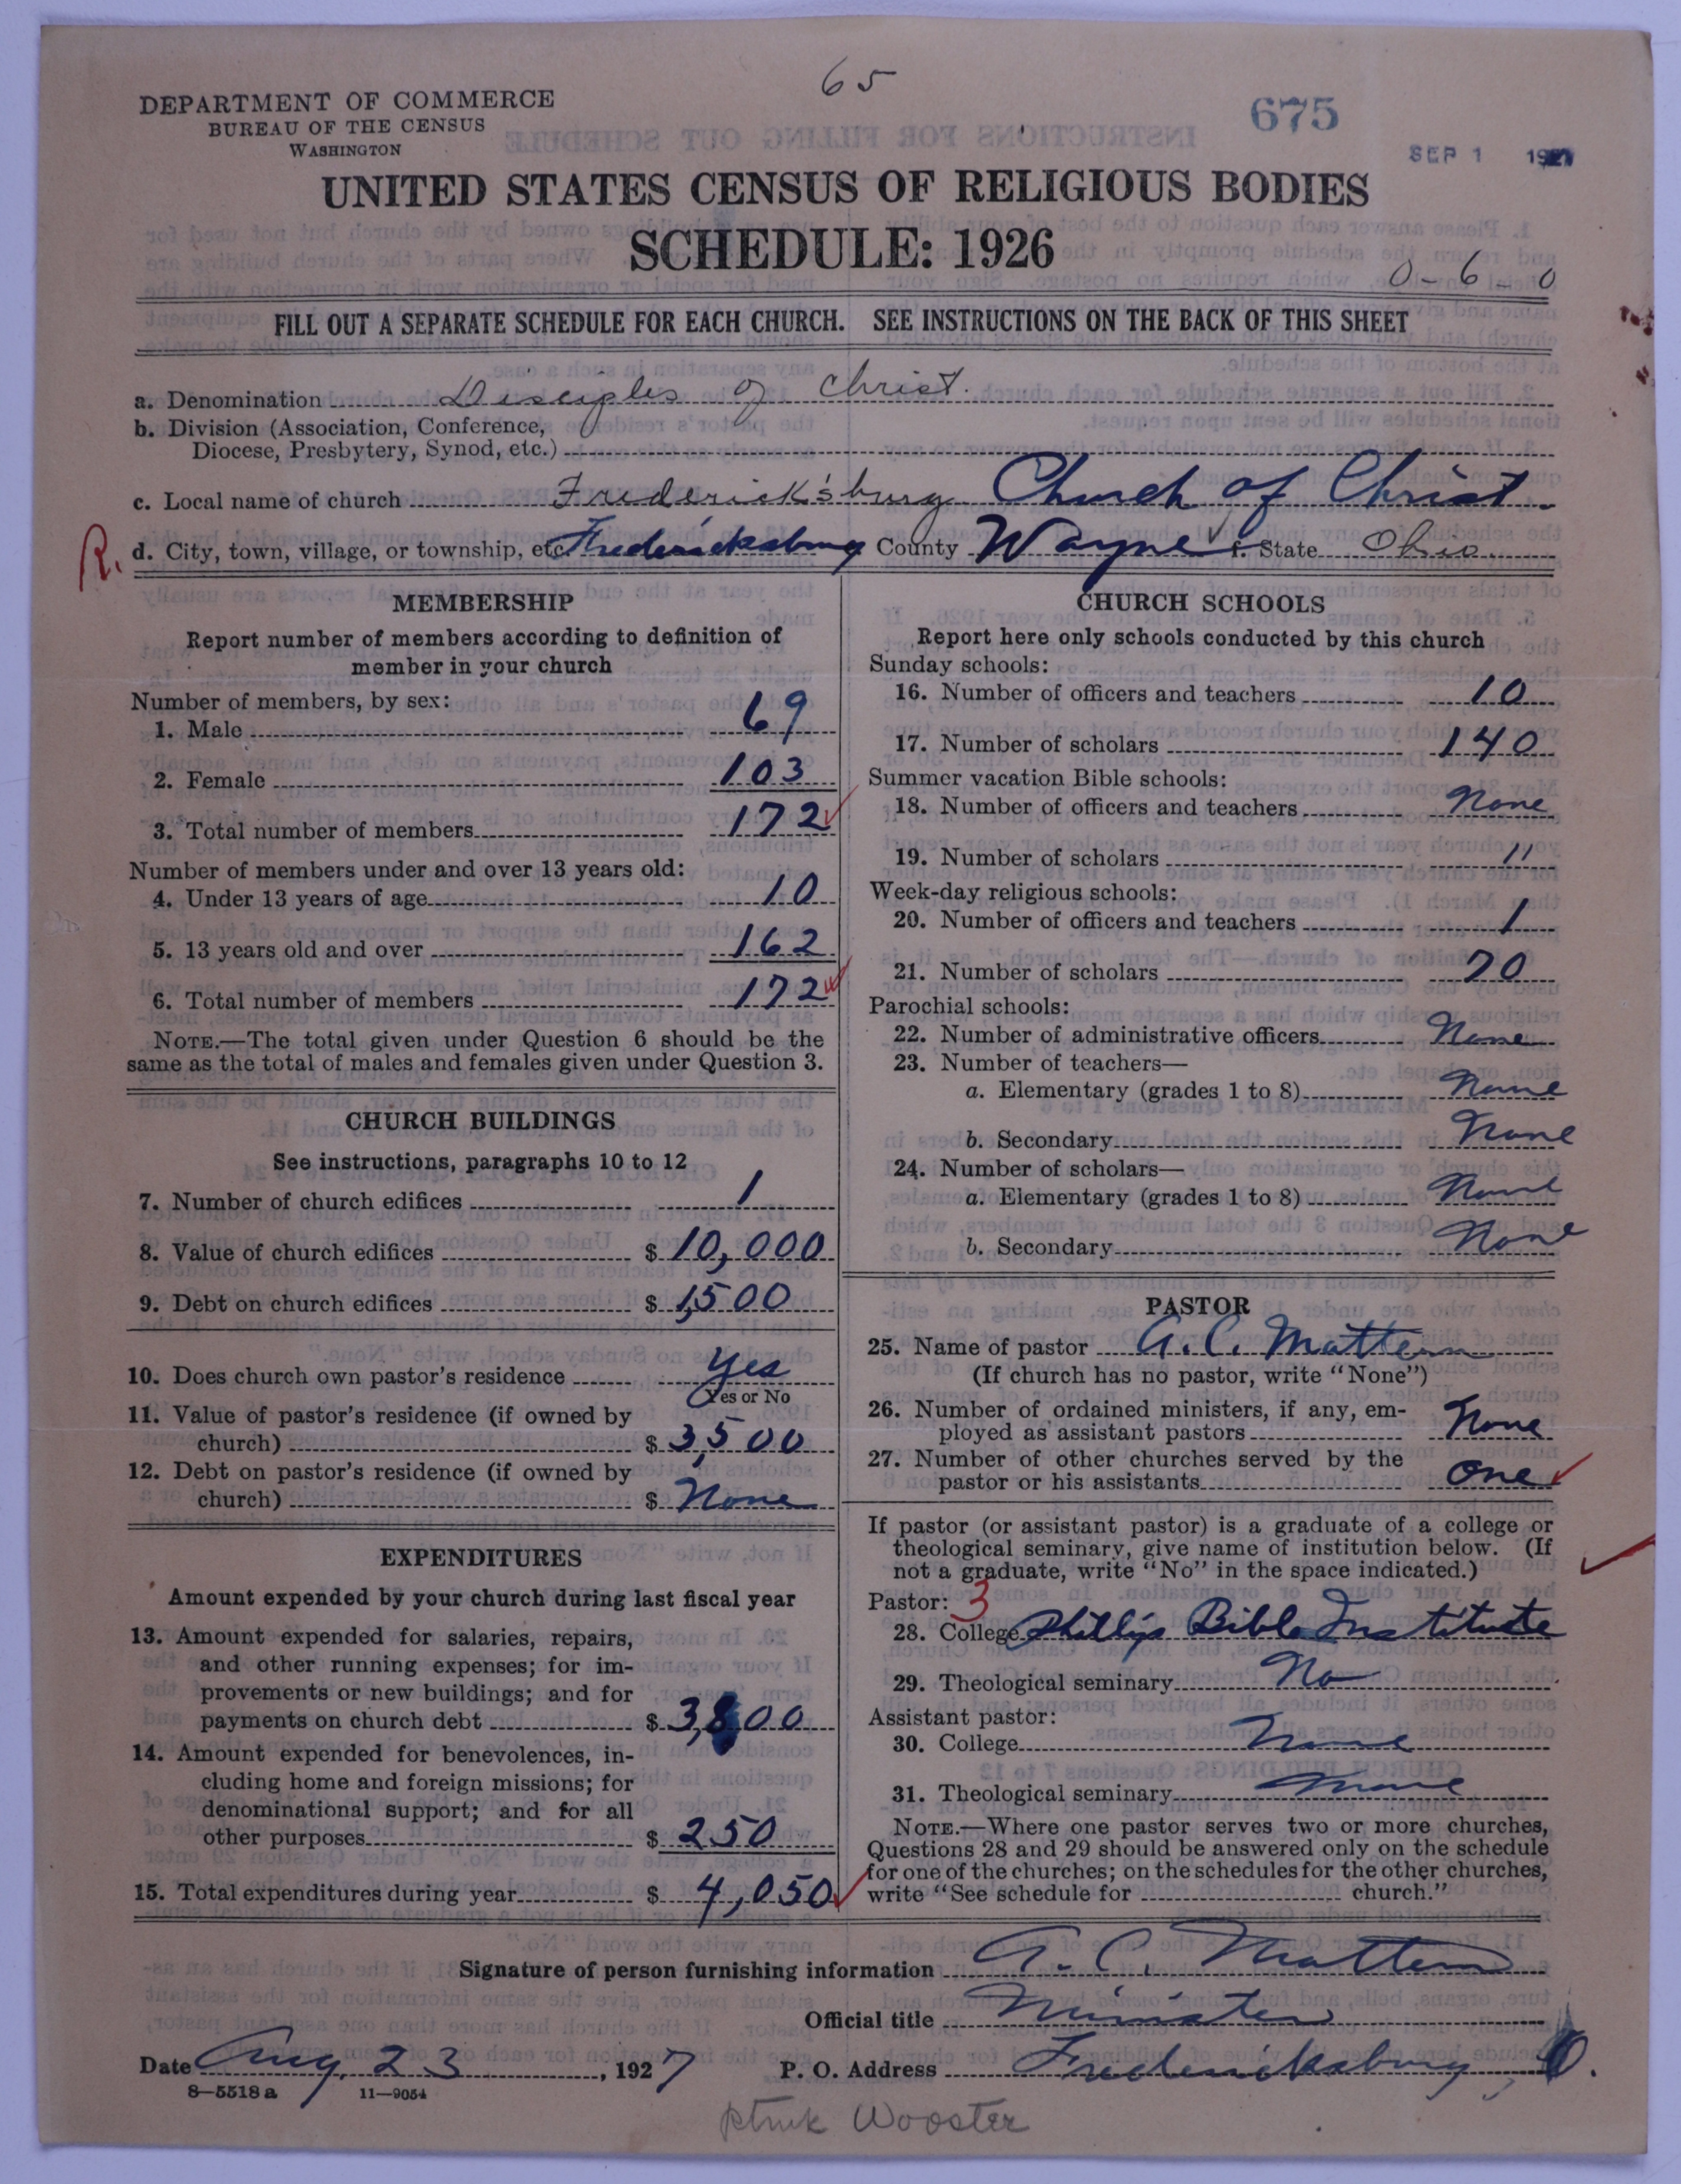 65
DEPARTMENT OF COMMERCE
BUREAU OF THE CENSUS
WASHINGTON
675
SEP 1 1927
UNITED STATES CENSUS OF RELIGIOUS BODIES
SCHEDULE: 1926
0-6-0
FILL OUT A SEPARATE SCHEDULE FOR EACH CHURCH. SEE INSTRUCTIONS ON THE BACK OF THIS SHEET
a. Denomination Disciples of Christ.
b. Division (Association, Conference,
Diocese, Presbytery, Synod, etc.)
c. Local name of church Frederick'sburg Church of Christ
R. d. City, town, village, or township, etc Fredericksburg County Wayne f. State Ohio
MEMBERSHIP
Report number of members according to definition of
member in your church
Number of members, by sex:
1. Male 69
2. Female 103
3. Total number of members 172
Number of members under and over 13 years old:
4. Under 13 years of age 10
5. 13 years old and over 162
6. Total number of members 172
NOTE.—The total given under Question 6 should be the
same as the total of males and females given under Question 3.
CHURCH BUILDINGS
See instructions, paragraphs 10 to 12
7. Number of church edifices 1
8. Value of church edifices $ 10,000
9. Debt on church edifices $ 1,500
10. Does church own pastor's residence Yes
Yes or No
11. Value of pastor's residence (if owned by
church) $ 3,500
12. Debt on pastor's residence (if owned by
church) $ None
EXPENDITURES
Amount expended by your church during last fiscal year
13. Amount expended for salaries, repairs,
and other running expenses; for im-
provements or new buildings; and for
payments on church debt $ 3,800
14. Amount expended for benevolences, in-
cluding home and foreign missions; for
denominational support; and for all
other purposes $ 250
15. Total expenditures during year $ 4,050
CHURCH SCHOOLS
Report here only schools conducted by this church
Sunday schools:
16. Number of officers and teachers 10
17. Number of scholars 140
Summer vacation Bible schools:
18. Number of officers and teachers None
19. Number of scholars "
Week-day religious schools:
20. Number of officers and teachers 1
21. Number of scholars 70
Parochial schools:
22. Number of administrative officers None
23. Number of teachers—
a. Elementary (grades 1 to 8) None
b. Secondary None
24. Number of scholars—
a. Elementary (grades 1 to 8) None
b. Secondary None
PASTOR
25. Name of pastor A. C. Mattern
(If church has no pastor, write "None")
26. Number of ordained ministers, if any, em-
ployed as assistant pastors None
27. Number of other churches served by the
pastor or his assistants one
If pastor (or assistant pastor) is a graduate of a college or
theological seminary, give name of institution below. (If
not a graduate, write "No" in the space indicated.)
Pastor: 3
28. College Phillips Bible Institute
29. Theological seminary No
Assistant pastor:
30. College None
31. Theological seminary None
NOTE.—Where one pastor serves two or more churches,
Questions 28 and 29 should be answered only on the schedule
for one of the churches; on the schedules for the other churches,
write "See schedule for church."
Signature of person furnishing information A. C. Mattern
Official title Minister
Date Aug. 23, 1927 P. O. Address Fredericksburg, O.
8—5518a 11—9054
Wooster